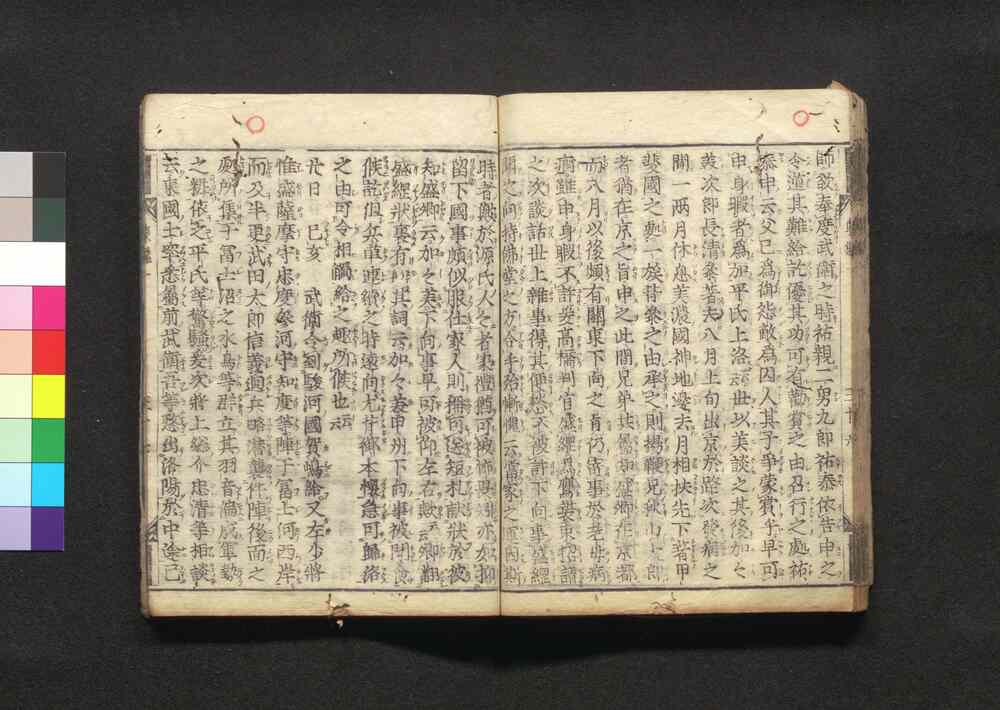 師欲奉度武衛之時祐親二男九郎祐泰依告申之
令遁其難給訖優其功可有勸賞之由召行之處祐
泰申云父已爲御怨敵爲囚人其子爭蒙賞乎早可
申身暇者爲加平氏上洛云云世以美談之其後加々
美次郎長清參著去八月上旬出京於路次發病之
間一兩月休息美濃國神地邊去月相扶先下著甲
斐國之處一族皆參之由承之則揚鞭兄秋山太郎
者猶在京之旨申之此間兄弟共屬知盛卿在京都
而八月以後頻有關東下向之志仍寄事於老母病
痾雖申身暇不許爰高橋判官盛綱爲鷹裝束招請
之次談話世上雜事得其便愁不被許下向事盛綱
聞之向持佛堂之方合手給慚愧云當家之運因斯
時者歟於源氏人々者家禮猶可被怖畏矧亦如抑
留下國事頗似服仕家人則稱可送短札獻狀於彼
知盛卿云加々美下向事早可被仰左右歟云卿翻
盛綱狀裏有返報其詞云加々美甲州下向事被聞食
候訖但兵革連續之時遠向尤背御本懷急可歸洛
之由可令相觸給之趣所候也云云
廿日 己亥 武衛令到駿河國賀嶋給又左少將
惟盛薩摩守忠度參河守知度等陣于富士河西岸
而及半更武田太郎信義廻兵略潛襲件陣後面之
處所集于富士沼之水鳥等群立其羽音偏成軍勢
之粧依之平氏等驚騷爰次將上総介忠清等相談
云東國士卒悉屬前武衛吾等憖出洛陽於中途已